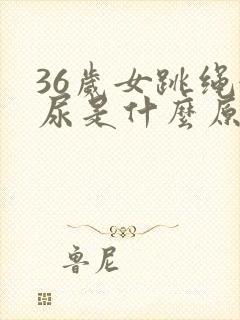 36歲女跳绳
尿是什麼原
鲁尼